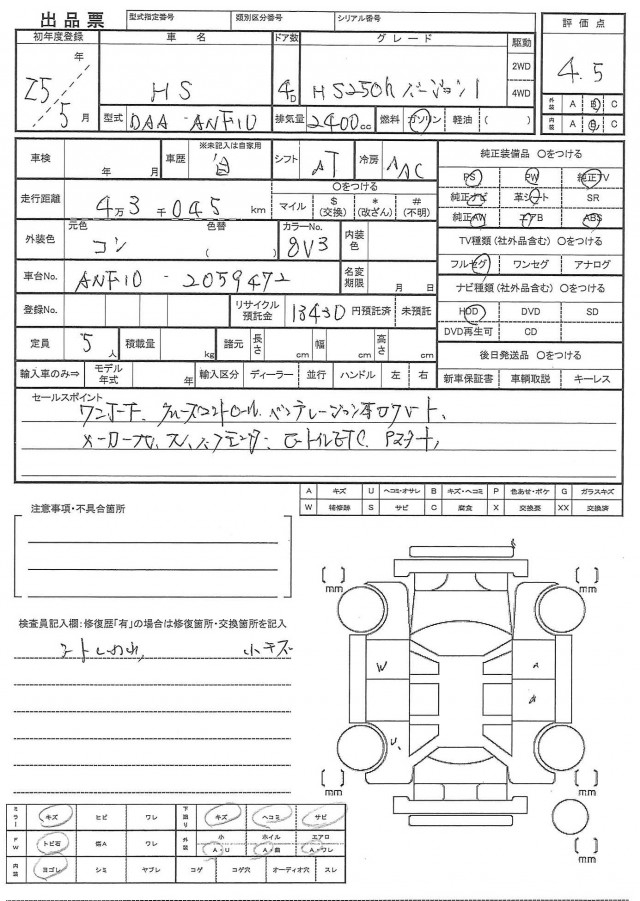 出品票 型式指定番号 類別区分番号 シリアル番号
初年度登録 車名 ドア数 グレード 駆動 評価点
25年 5月 HS 4D HS250h バージョン 2WD 4WD 4.5
型式 DAA-ANF10 排気量 2400cc 燃料 ガソリン 軽油 ( )
外装 A B C
内装 A B C
車検 年 月 車歴 ※未記入は自家用 自 シフト AT 冷房 AAC
走行距離 4万3千045km ○をつける マイル $(交換) *(改ざん) #(不明)
外装色 元色 コン 色替 ( カラーNo. 8V3 内装色
車台No. ANF10-2059472 名変期限 月 日
登録No. リサイクル預託金 13430 円預託済 未預託
定員 5人 積載量 kg 諸元 長さ cm 幅 cm 高さ cm
輸入車のみ⇒ モデル年式 年 輸入区分 ディーラー 並行 ハンドル 左 右
純正装備品 ○をつける
PS PW 純正TV
純正ナビ 革シート SR
純正AW エアB ABS
TV種類(社外品含む) ○をつける
フルセグ ワンセグ アナログ
ナビ種類(社外品含む) ○をつける
HDD DVD SD
DVD再生可 CD
後日発送品 ○をつける
新車保証書 車輌取説 キーレス
セールスポイント
ワンオーナー、クルーズコントロール、ベンチレーション
メーカーナビ ETC、Pスタート、
A キズ U ヘコミ・オサレ B キズ・ヘコミ P 色あせ・ボケ G ガラスキズ
W 補修跡 S サビ C 腐食 X 交換要 XX 交換済
注意事項・不具合箇所
検査員記入欄:修復歴「有」の場合は修復箇所・交換箇所を記入
小キズ
[ ] mm [ ] mm
W A
U
[ ] mm [ ] mm
[ ] mm
ミラー キズ ヒビ ワレ 下廻り キズ ヘコミ サビ
FW トビ石 傷A ワレ 外装 小 A・U ホイル A・曲 エアロ A・ワレ
内装 ヨゴレ シミ ヤブレ コゲ コゲ穴 オーディオ穴 スレ